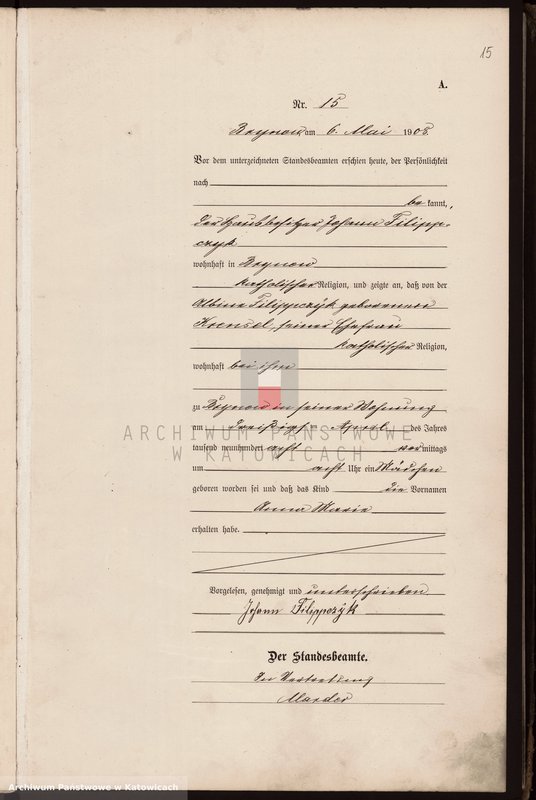 15
A.
Nr. 15
am 6. Mai 1908.
Vor dem unterzeichneten Standesbeamten erschien heute, der Persönlichkeit
nach
be kannt,
der Hausbesitzer Johann Filipp-
czyk
wohnhaft in
katholischer Religion, und zeigte an, daß von der
Albine Filippczyk geborenen
seiner Ehefrau
katholischer Religion,
wohnhaft bei ihm
zu in seiner Wohnung
am dreißigsten April des Jahres
tausend neunhundert acht vormittags
um acht Uhr ein Mädchen
geboren worden sei und daß das Kind die Vornamen
Anna Marie
erhalten habe.
Vorgelesen, genehmigt und unterschrieben
Johann Filippczyk
Der Standesbeamte.
In Vertretung
ARCHIWUM PAŃSTWOWE
W KATOWICACH
Archiwum Państwowe w Katowicach